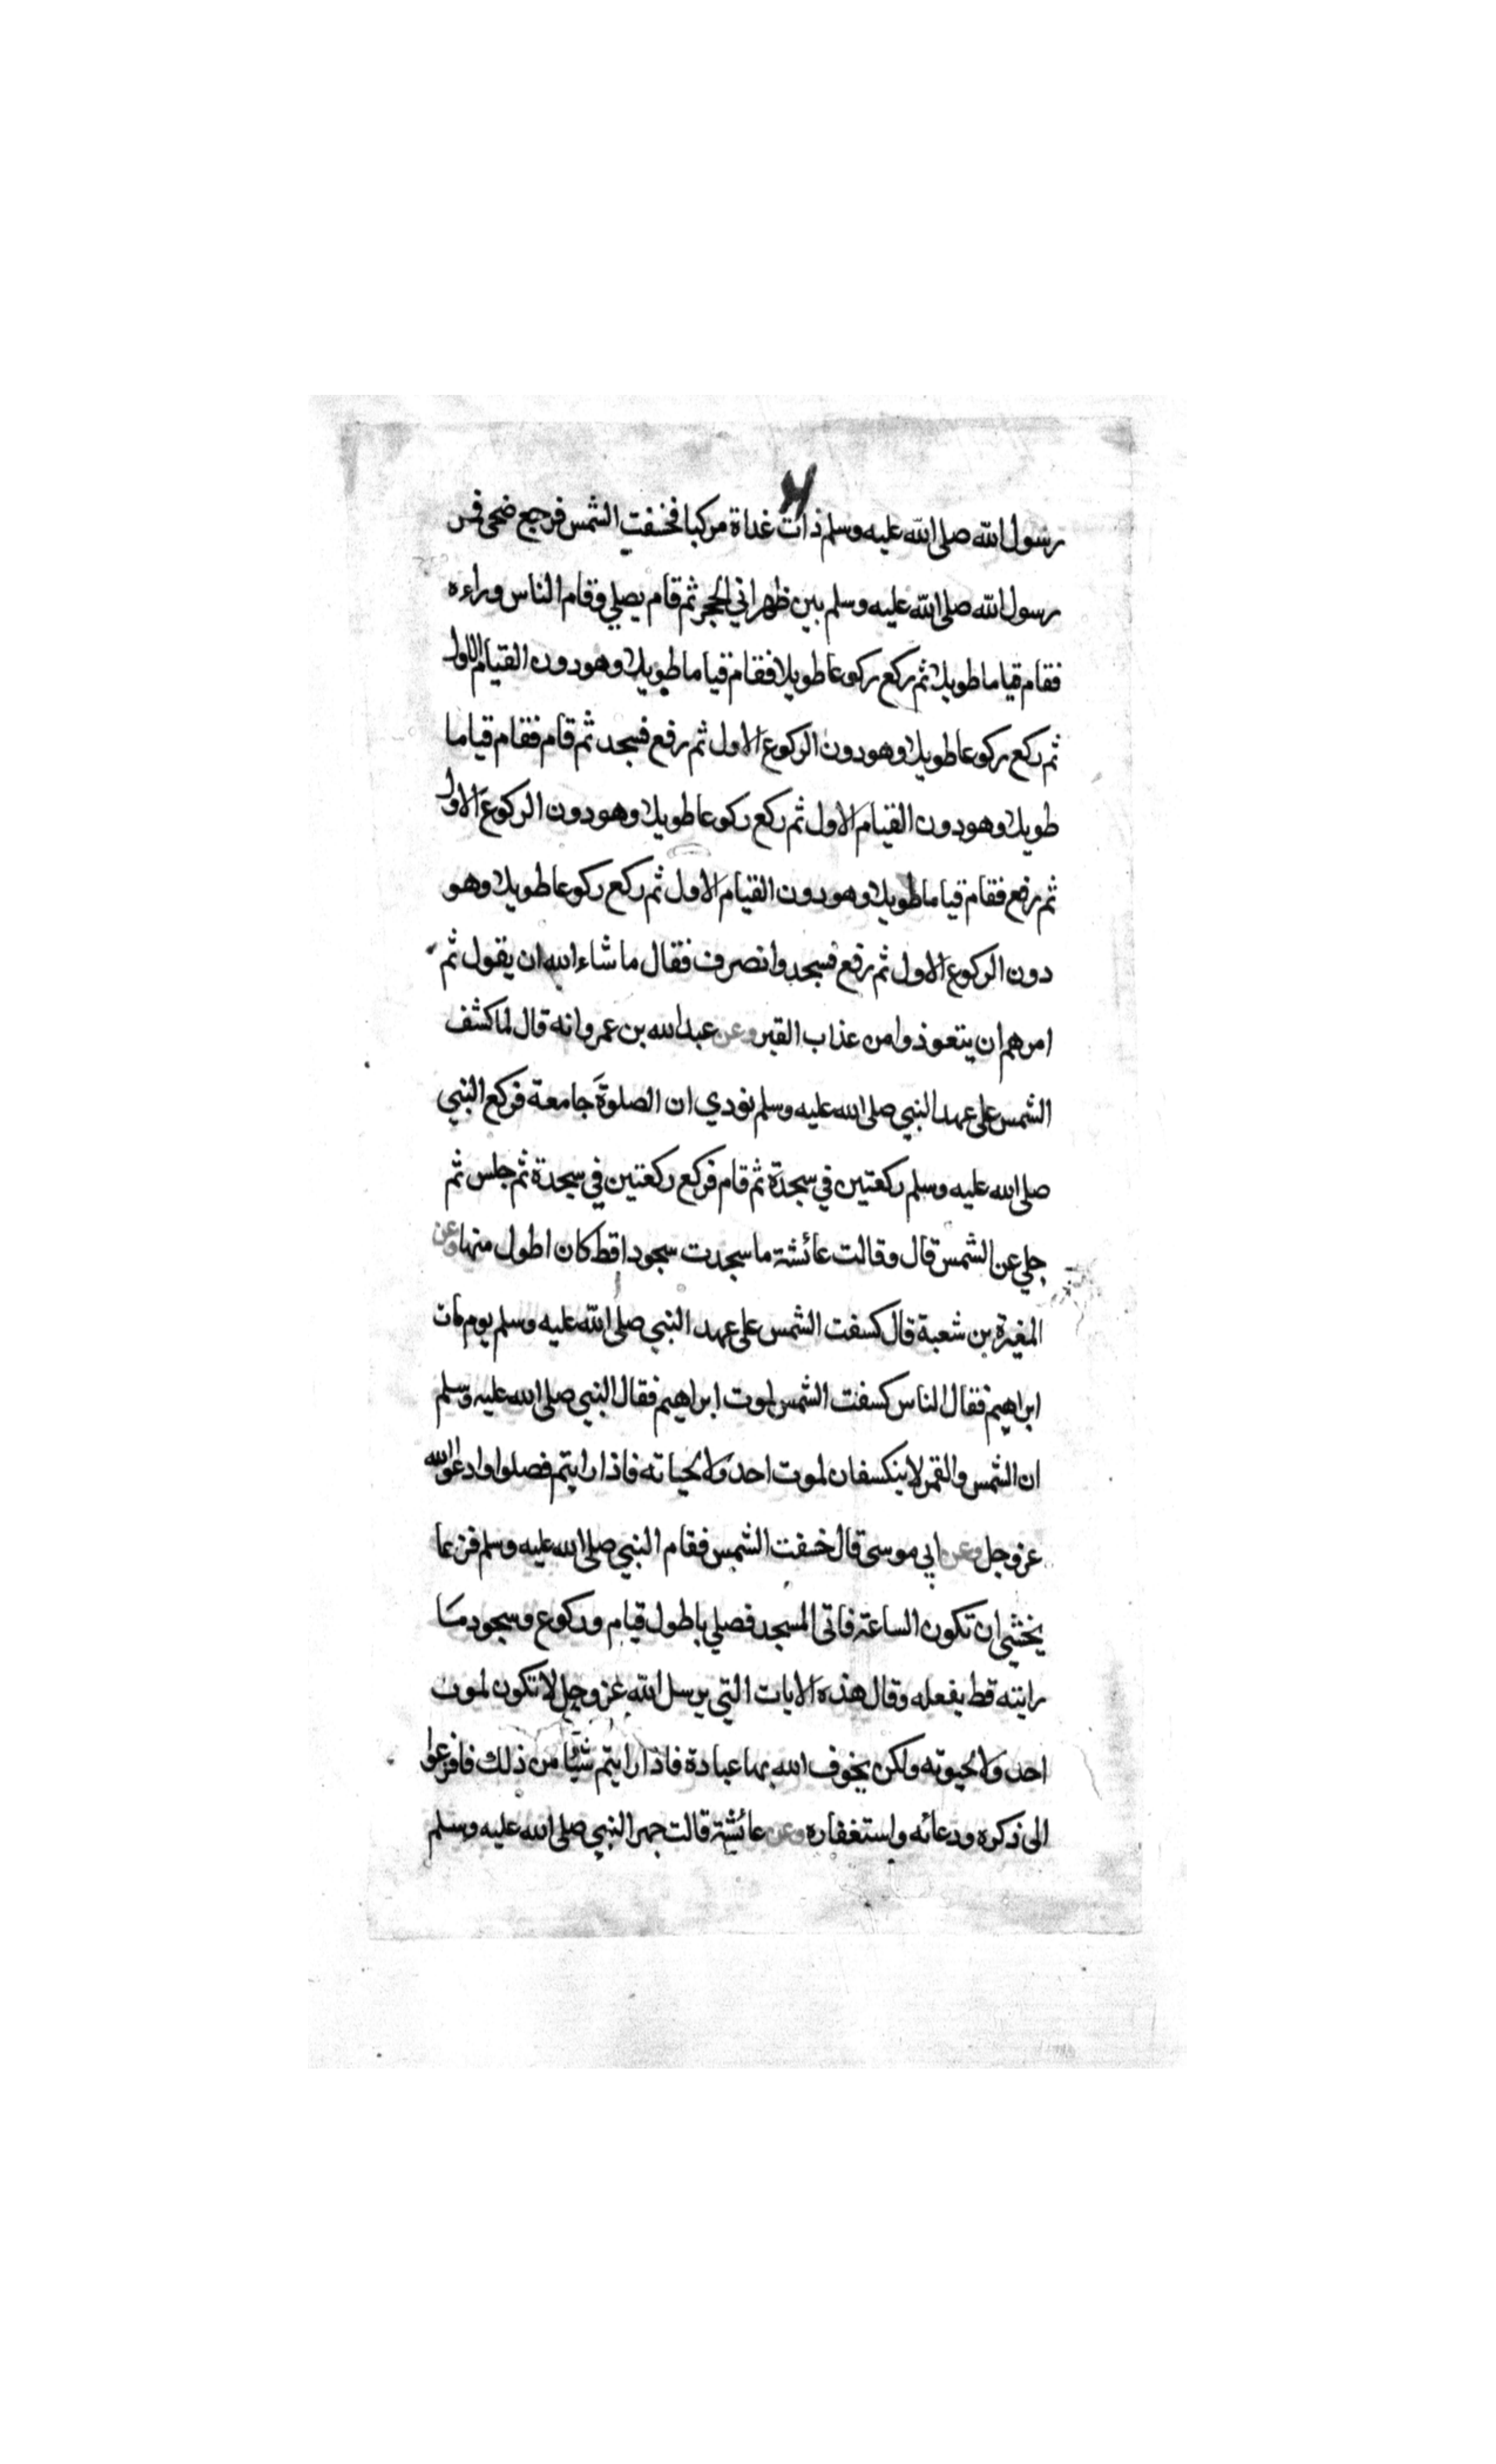 رسول الله صلى الله عليه وسلم ذات غداة مركبا فخسفت الشمس فرجع ضحى فمر
رسول الله صلى الله عليه وسلم بين ظهراني الحجر ثم قام يصلي وقام الناس وراءه
فقام قياما طويلا ثم ركع ركوعا طويلا فقام قياما طويلا وهو دون القيام الاول
ثم ركع ركوعا طويلا وهو دون الركوع الاول ثم رفع فسجد ثم قام فقام قياما
طويلا وهو دون القيام الاول ثم ركع ركوعا طويلا وهو دون الركوع الاول
ثم رفع فقام قياما طويلا وهو دون القيام الاول ثم ركع ركوعا طويلا وهو
دون الركوع الاول ثم رفع فسجد وانصرف فقال ما شاء الله ان يقول ثم
امرهم ان يتعوذوا من عذاب القبر وعن عبد الله بن عمرو انه قال لما كشف
الشمس على عهد النبي صلى الله عليه وسلم نودي ان الصلوة جامعة فركع النبي
صلى الله عليه وسلم ركعتين في سجدة ثم قام فركع ركعتين في سجدة ثم جلس ثم
جلي عن الشمس قال وقالت عائشة ما سجدت سجودا قط كان اطول منها وعن
المغيرة بن شعبة قال كسفت الشمس على عهد النبي صلى الله عليه وسلم يوم مات
ابراهيم فقال الناس كسفت الشمس لموت ابراهيم فقال النبي صلى الله عليه وسلم
ان الشمس والقمر لا ينكسفان لموت احد ولا لحياته فاذا رايتم فصلوا وادعوا الله
عز وجل وعن ابي موسى قال خسفت الشمس فقام النبي صلى الله عليه وسلم فزعا
يخشى ان تكون الساعة فاتى المسجد فصلي باطول قيام وركوع وسجود ما
رايته قط يفعله وقال هذه الايات التي يرسل الله عز وجل لا تكون لموت
احد ولا لحيوته ولكن يخوف الله بها عبادة فاذا رايتم شيئا من ذلك فافزعوا
الى ذكره ودعائه واستغفاره وعن عائشة قالت جهر النبي صلى الله عليه وسلم